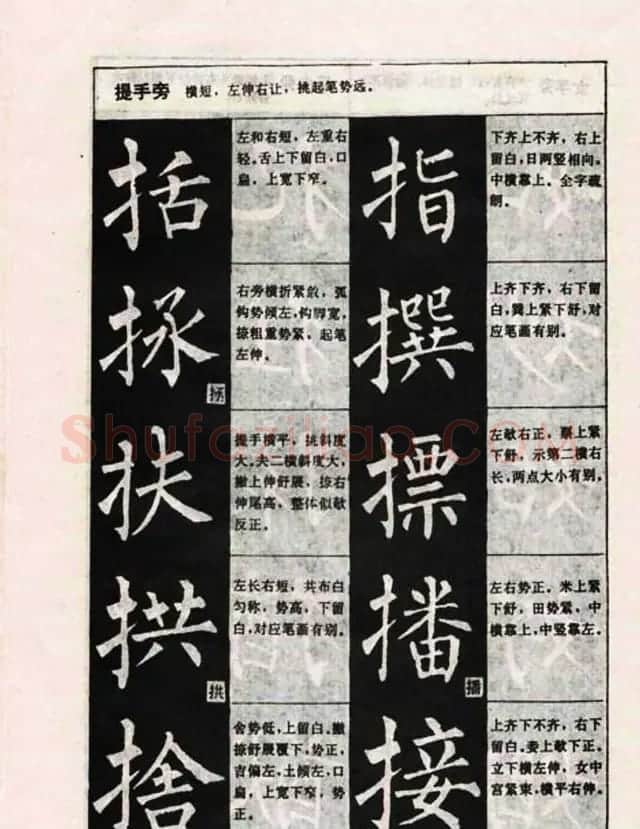 提手旁 横短，左伸右让，挑起笔势远。
括
左和右短，左重右
轻。舌上下留白，口
扁，上宽下窄。
指
下齐上不齐，右上
留白，日两竖相向。
中横靠上。全字疏
朗。
拯
右旁横折紧敛，弧
钩势倾左，钩脚宽，
捺粗重势紧，起笔
左伸。
拯
撰
上齐下齐，右下留
白，巽上紧下舒，对
应笔画有别。
扶
提手横平，挑斜度
大。夫二横斜度大，
撇上伸舒展，捺右
伸尾高，整体似欹
反正。
標
左欹右正，票上紧
下舒，示第二横右
长，两点大小有别。
拱
左长右短，共布白
匀称，势高，下留
白，对应笔画有别。
拱
播
左右势正。米上紧
下舒，田势紧，中
横靠上，中竖靠左。
播
捨
舍势低，上留白。撇
捺舒展覆下，势正，
吉偏左，土倾左，口
扁，上宽下窄，势
正。
接
上齐下不齐，右下
留白。妾上欹下正。
立下横左伸，女中
宫紧束，横平右伸。
Shufaziliao.com